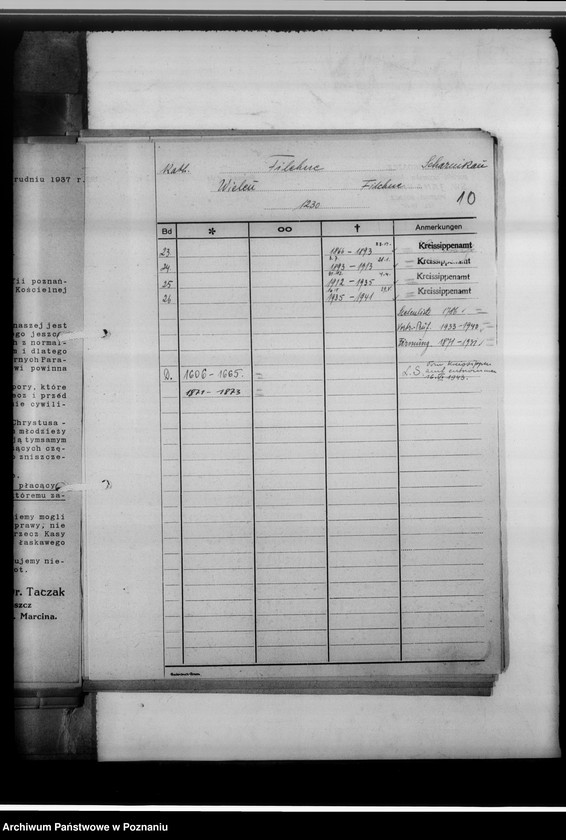 rudniu 1937 r.
ii poznań-
Kościelnej
naszej jest
ego jeszcz
h z normal-
m i dlatego
rnych Para-
wi powinna
pory, które
ecz i przed
ie cywili-
Chrystusa -
młodzieży
ją tymsamym
ących czę-
zniszcze-
płacący
któremu za-
iemy mogli
prawy, nie
rzecz Kasy
łaskawego
ujemy nie-
ot.
r. Taczak
szcz
. Marcina.
Kath. Filehne Scharnikau
Wieleń Filehne
1230 10
Bd * oo † Anmerkungen
23 1860 - 1893 Kreissippenamt
24 1893 - 1913 Kreissippenamt
25 1912 - 1935 Kreissippenamt
26 1935 - 1941 Kreissippenamt
1933 - 1940
Firmung. 1871 -
D. 1606 - 1665. L.S.
1871 - 1873
Archiwum Państwowe w Poznaniu